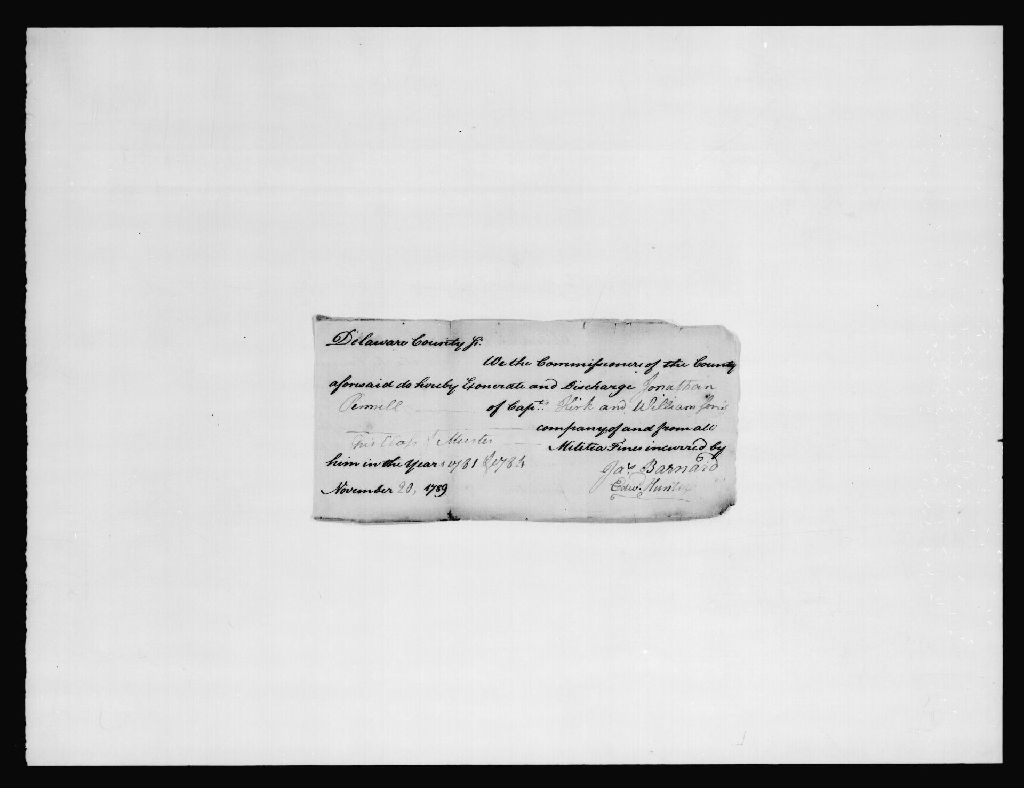 Delaware County Ss.
We the Commissioners of the County
aforesaid do hereby Exonerate and Discharge Jonathan
Pennell of Capts. Kirk and William
company of and from all
Militea Fines incurred by
him in the Years 1781 & 1784
Jas. Barnard
November 20, 1789
Edw. Hunter